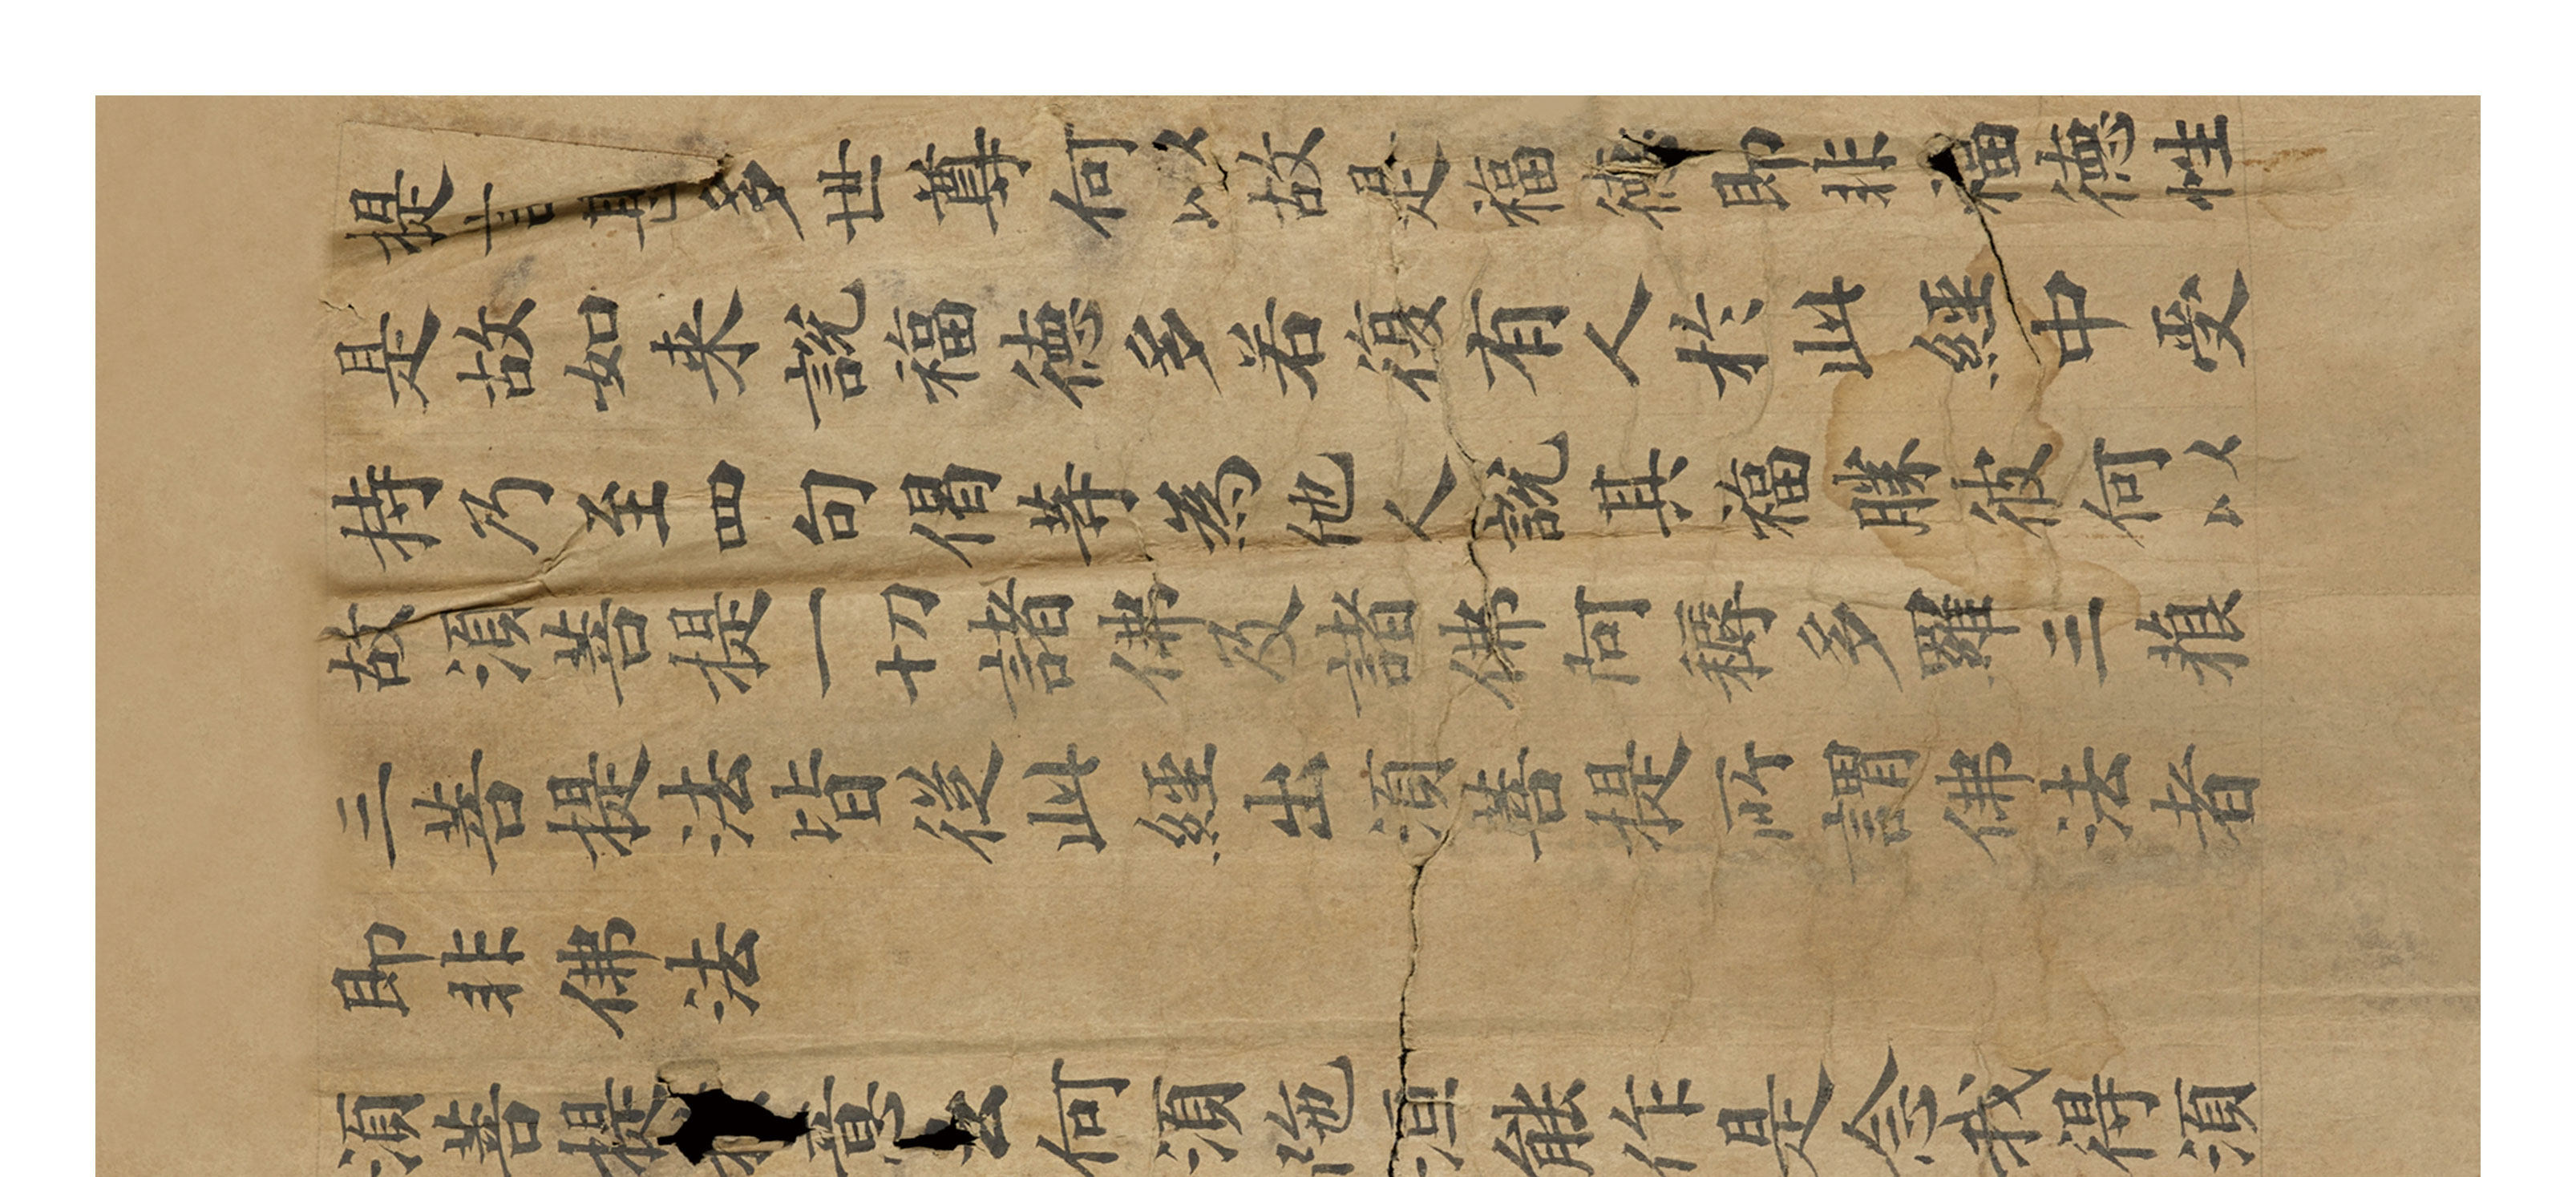 提言甚多世尊何以故是福德即非福德性
是故如来說福德多若復有人於此經中受
持乃至四句偈等為他人說其福勝彼何以
故須菩提一切諸佛及諸佛阿耨多羅三藐
三菩提法皆從此經出須菩提所謂佛法者
即非佛法
須菩提於意云何須陁洹能作是念我得須